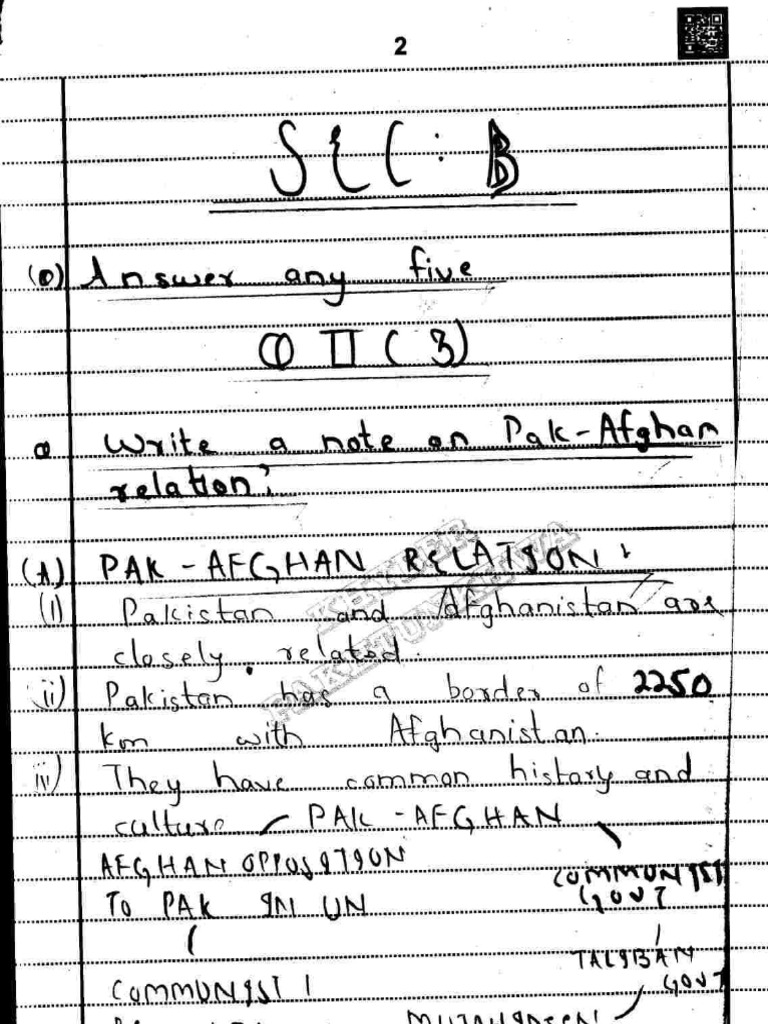 2
SEC : B
(Q) Answer any five
Q II (3)
Q Write a note on Pak-Afghan
relation?
(A) PAK - AFGHAN RELATION :
(i) Pakistan and Afghanistan are
closely related
ii) Pakistan has a border of 2250
km with Afghanistan.
iv) They have common history and
culture PAK - AFGHAN
AFGHAN OPPOSITION
COMMUNIST
TO PAK IN UN
GOVT
TALIBAN
GOVT
COMMUNIST
KHYBER
PAKHTUNKHWA